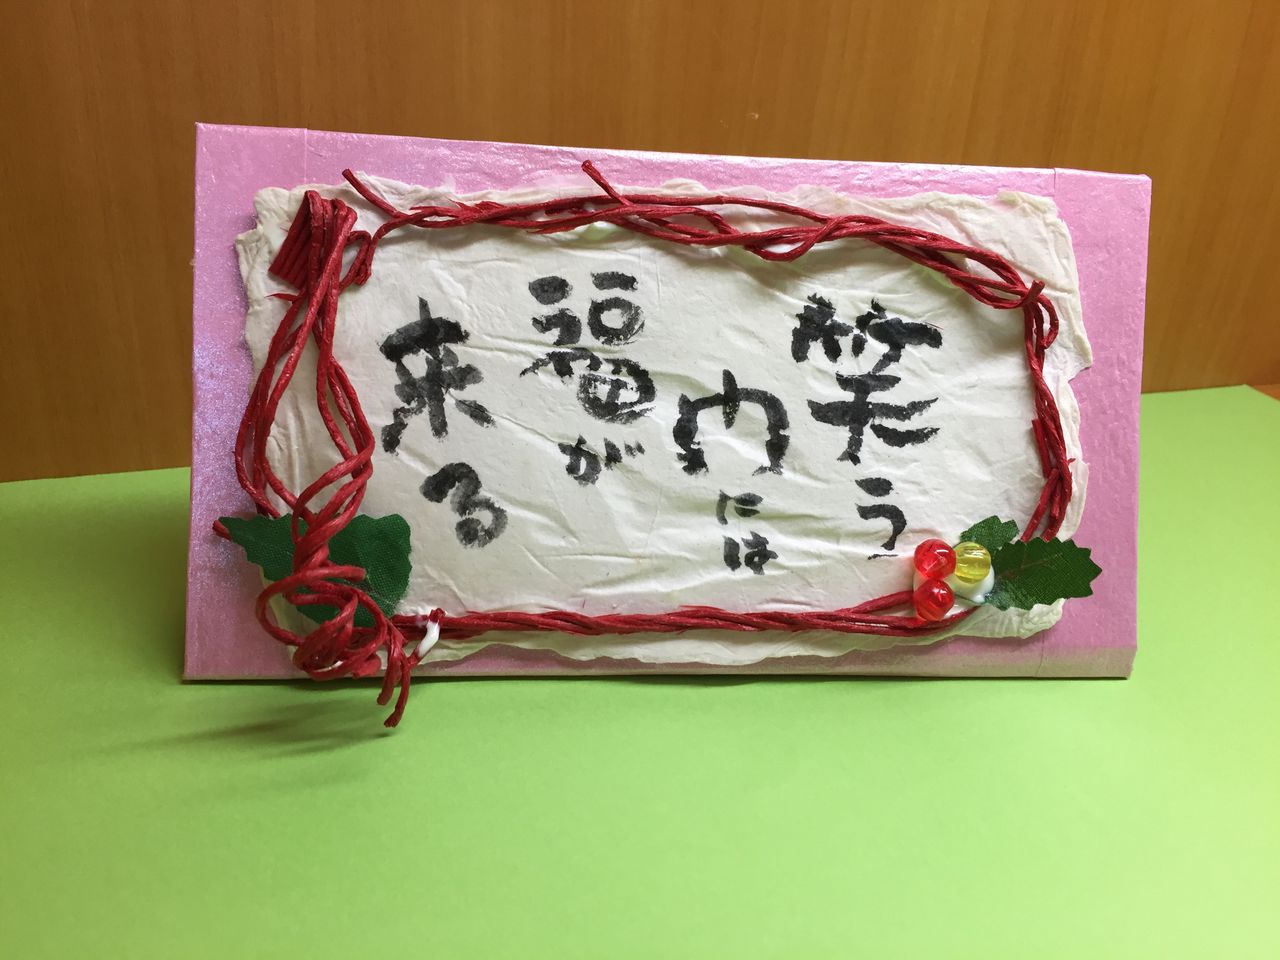 笑う
内には
福が
来る